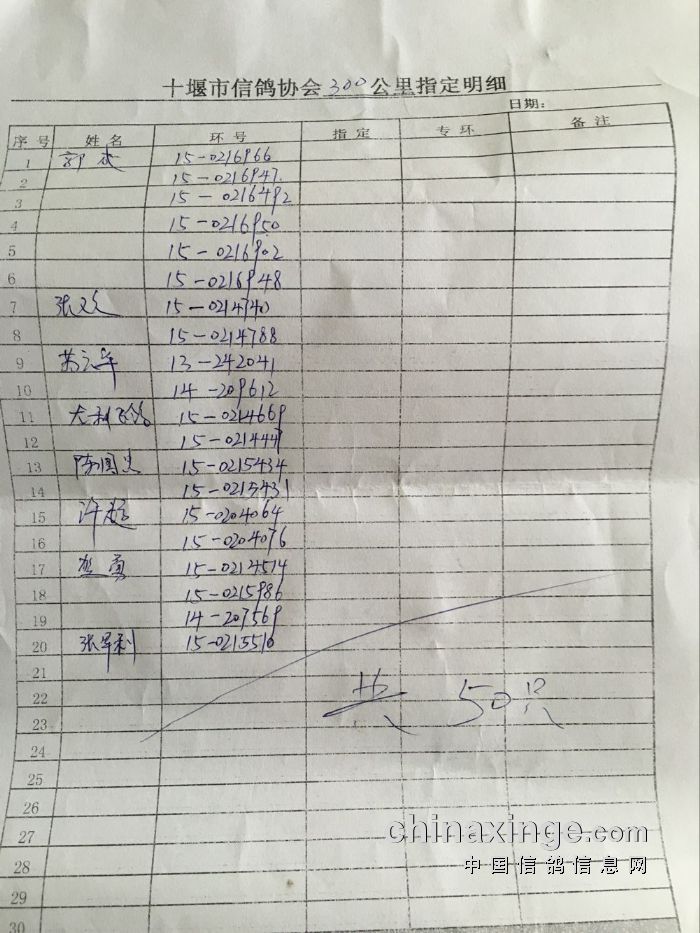 十堰市信鸽协会300公里指定明细
日期:
序号 姓名 环号 指定 专环 备注
1 15-0216966
2 15-0216947
3 15-0216492
4 15-0216950
5 15-0216902
6 15-0216948
7 张 15-0214740
8 15-0214788
9 13-242041
10 14-209612
11 15-0214669
12 15-021444
13 陈国 15-0215434
14 15-0215431
15 许 15-0204064
16 15-0204076
17 勇 15-0214514
18 15-0215986
19 14-207569
20 张军利 15-0215510
21
22
23
24
25
26
27
28
29
30
共 50只
chinaxinge.com
中国信鸽信息网